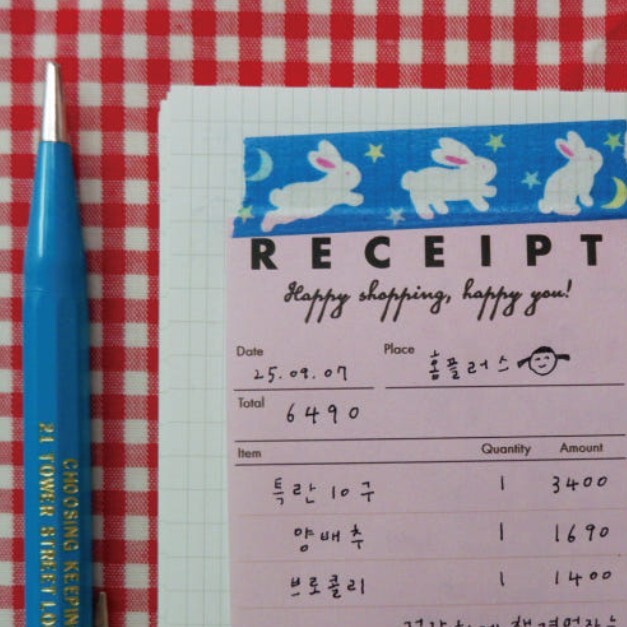 RECEIPT
Happy shopping, happy you!
Date 25.09.07 Place 홈플러스
Total 6490
Item Quantity Amount
특란 10구 1 3400
양배추 1 1690
브로콜리 1 1400
CHOOSING KEEPIN
21 TOWER STREET LO